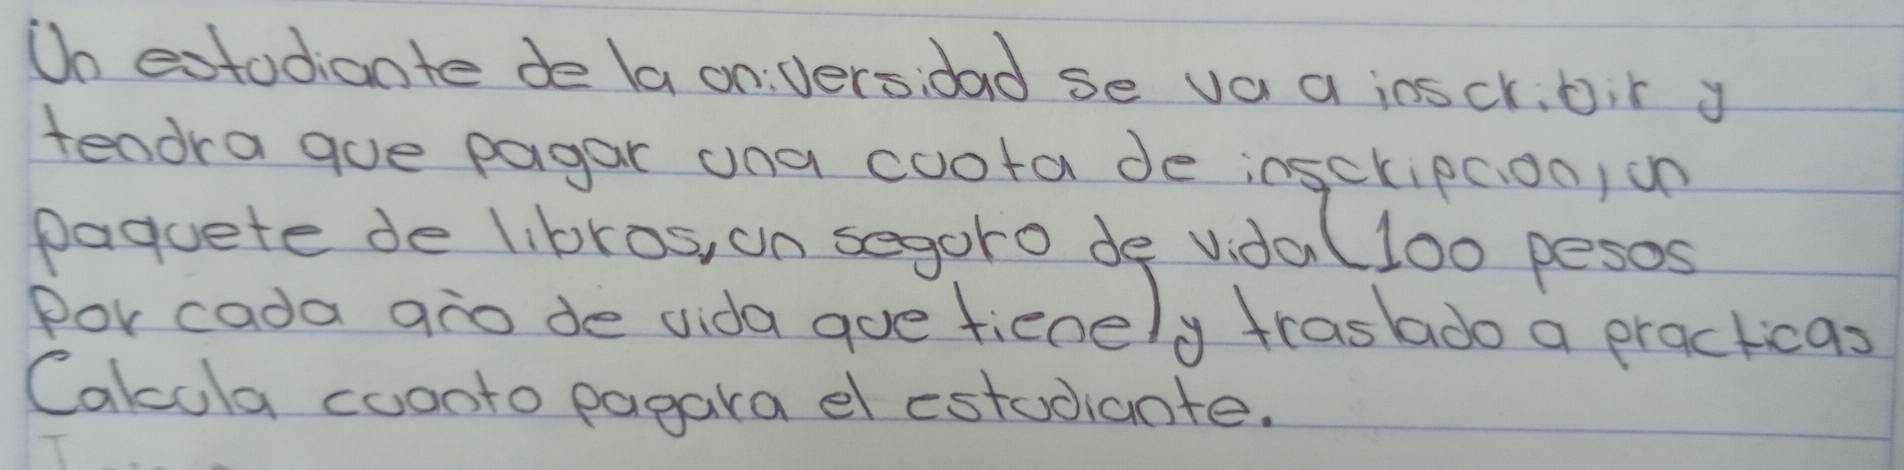 Un estudiante de la universidad se va a inscribir y
tendra que pagar una cuota de inscripcion, un
paquete de libros, un seguro de vida (100 pesos
por cada año de vida que tiene) y traslado a practicas
Calcula cuanto pagara el estudiante.